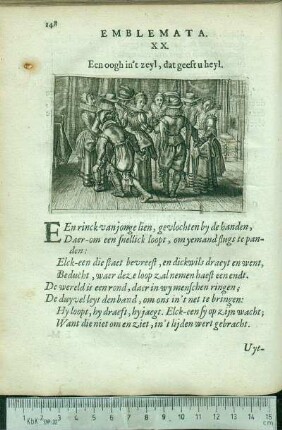 148
EMBLEMATA.
XX.
Een oogh in't zeyl, dat geeft u heyl.
EEn rinck van jonge lien, gevlochten by de handen,
Daer-om een snellick loopt, om yemand flugs te pan-
den:
Elck-een die staet bevreest, en dickwils draeyt en went,
Beducht, waer deze loop zal nemen haest een endt.
De wereld is een rond, daer in wy menschen ringen;
De duyvel leyt den band, om ons in't net te bringen:
Hy loopt, hy draeft, hy jaegt. Elck-een sy op zijn wacht;
Want die niet om en ziet, in't lijden wert gebracht.
Uyt-
1 2 3 4 5 6 7 8 9 10 11 12 13 14 15
cm